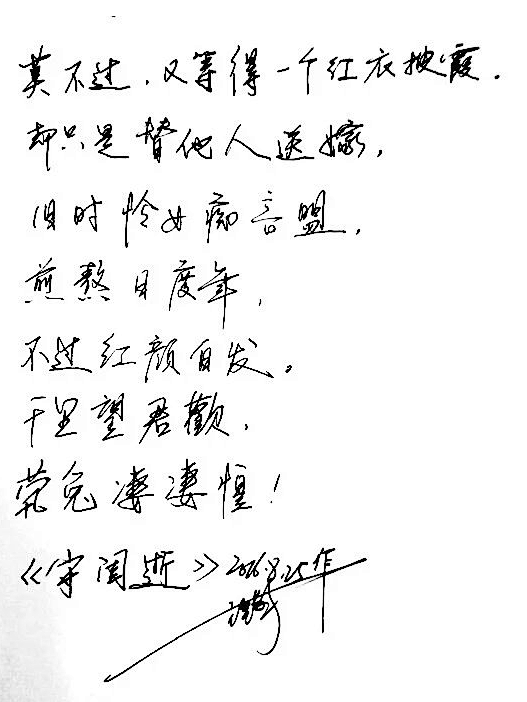 莫不过,又等得一个红衣披霞.
却只是替他人送嫁,
旧时怜女痴言盟,
煎熬日度年,
不过红颜白发。
千里望君歡,
茕兔凄凄惶!
《守闺逝》2026.8.25作